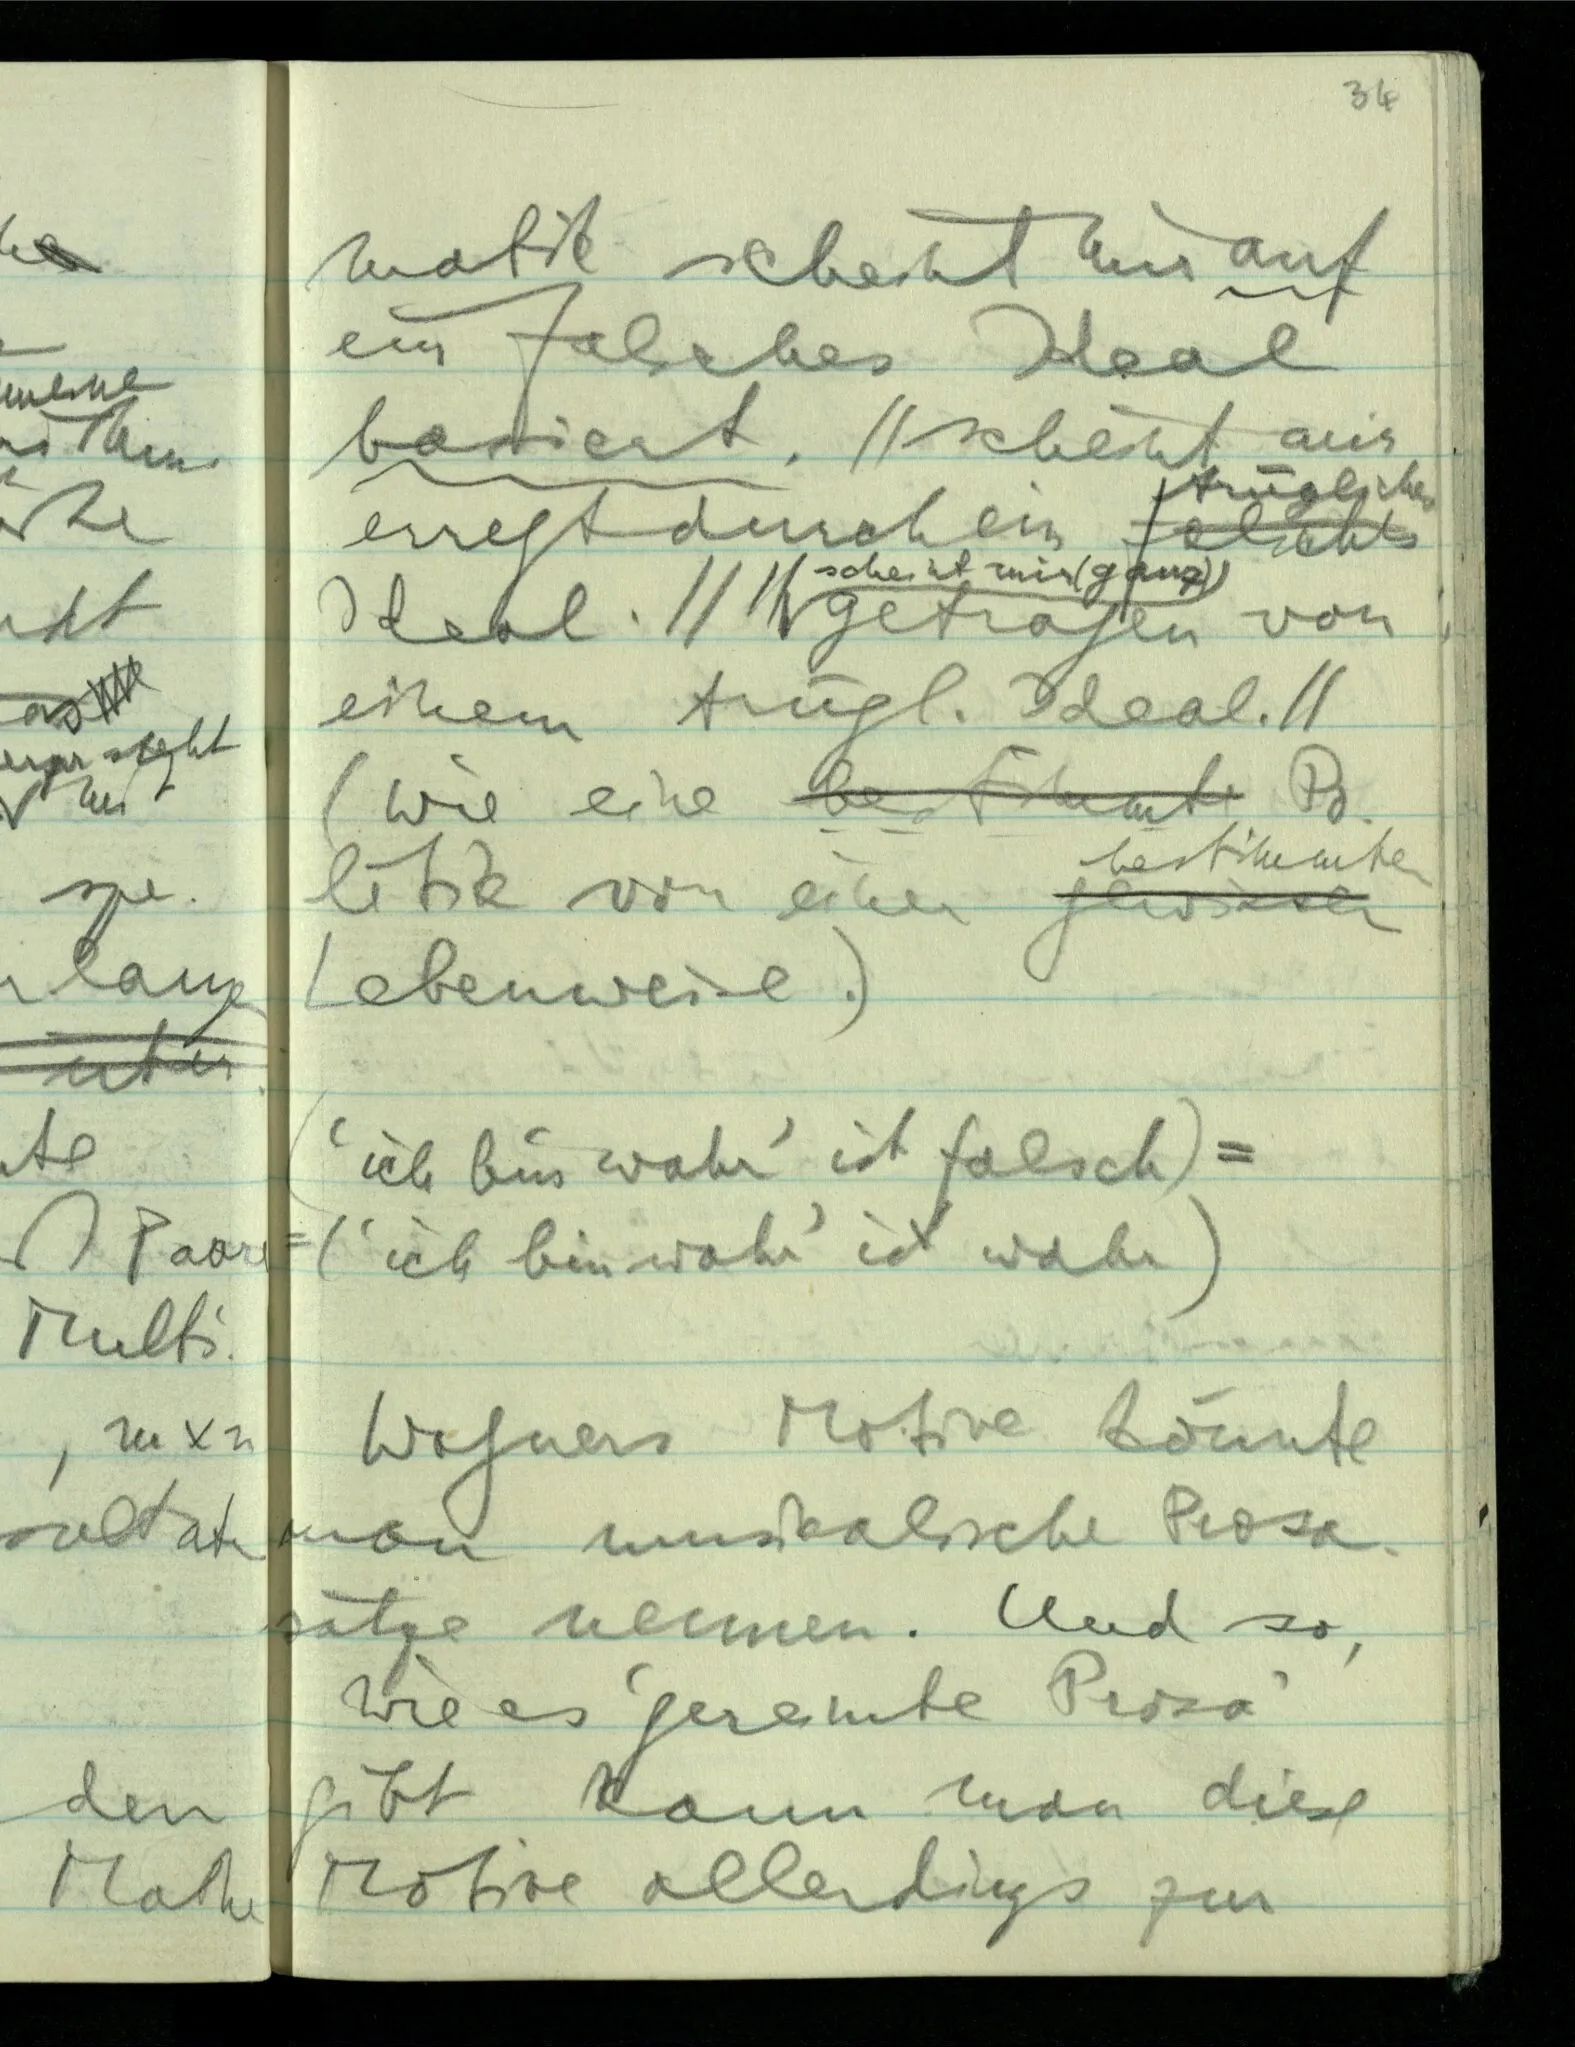 34
matik scheint mir auf
ein falsches Ideal
basiert. // scheint mir
trügliches
erregt durch ein falsches
scheint mir (ganz)
Ideal. // // getragen von
einem trügl. Ideal. //
(wie eine bestimmte Po-
bestimmten
litik von einer gewissen
Lebenweise.)
('ich bin wahr' ist falsch) =
= ('ich bin wahr' ist wahr)
Wagners Motive könnte
man musikalische Prosa-
sätze nennen. Und so,
wie es 'gereimte Prosa'
gibt kann man diese
Motive allerdings zur
spe-
lang
Paare
Multi-
, m×n
den
Mathe